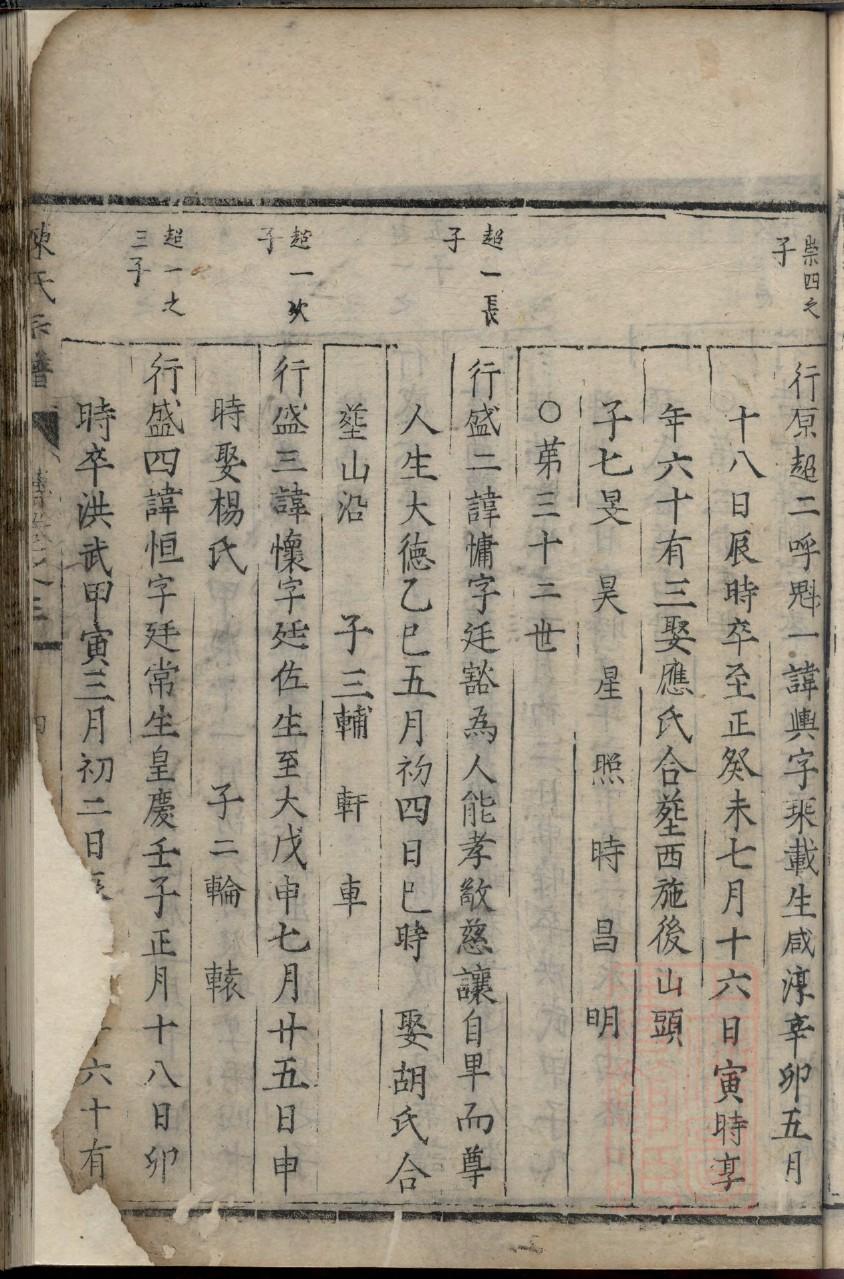 崇四之
子
行原超二呼魁一諱輿字乘載生咸淳辛卯五月
十八日辰時卒至正癸未七月十六日寅時享
年六十有三娶應氏合塟西施後山頭
子七旻 昊 星 照 時 昌 明
○苐三十二世
超一長
子
行盛二諱慵字廷豁為人能孝敬慈讓自卑而尊
人生大德乙巳五月初四日巳時 娶胡氏合
塟山沿 子三輔 軒 車
超一次
子
行盛三諱懷字廷佐生至大戊申七月廿五日申
時娶楊氏 子二輪 轅
超一之
三子
行盛四諱恒字廷常生皇慶壬子正月十八日卯
時卒洪武甲寅三月初二日 六十有
陳氏宗譜